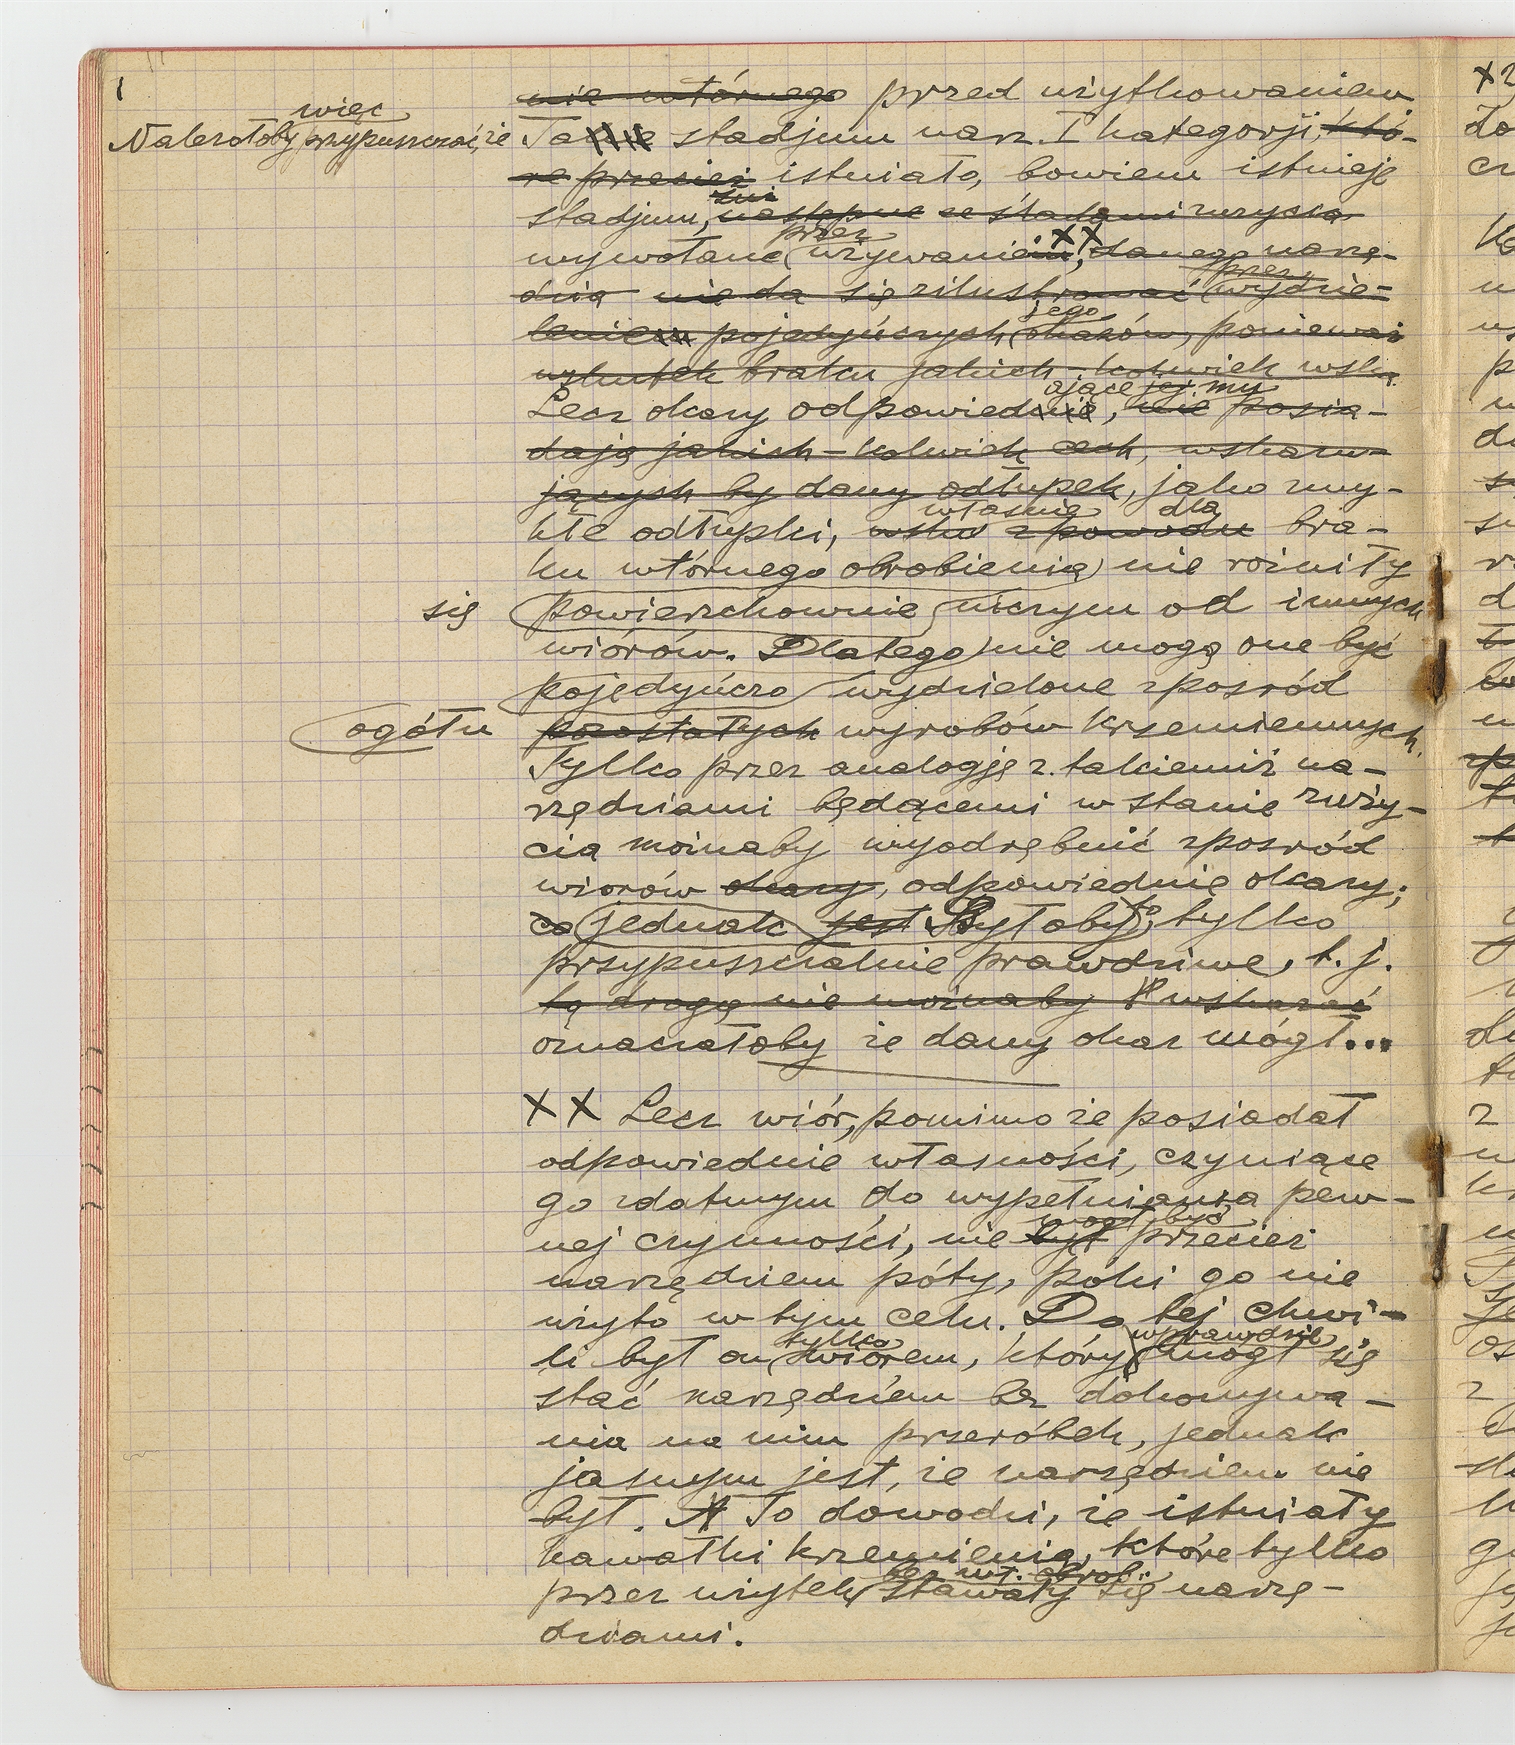 nie wtórnego przed użytkowaniem.
więc
Należałoby przypuszczać, że Takie stadjum narz. I kategorji, któ-
re przecież istniało, bowiem istnieje
stadjum, następne ze śladami zużycia
przez
wywołane używaniem, xx danego narzę-
dzia nie da się zilustrować przez wydzie-
leniem pojedyńczych jego okazów, ponieważ
wskutek braku jakich-kolwiek wska
Lecz okazy odpowiednie, ające jej my nie posia-
dają jakich-kolwiek cech, wskazu-
jących by dany odłupek, jako zwy-
kłe odłupki, właśnie z powodu dla bra-
ku wtórnego obrobienia nie różniły
się powierzchownie niczym od innych
wiórów. Dlatego nie mogą one być
pojedyńczo wydzielone zpośród
ogółu pozostałych wyrobów krzemiennych.
Tylko przez analogję z takiemiż na-
rzędziami będącemi w stanie zuży-
cia możnaby wyodrębnić zpośród
wiórów okazy, odpowiednie okazy;
co jednak jest Byłoby to tylko
przypuszczalnie prawdziwe, t. j.
tą drogą nie możnaby wskazać
oznaczałoby że dany okaz mógł...
XX Lecz wiór, pomimo że posiadał
odpowiednie własności, czyniące
go zdatnym do wypełniania pew-
nej czynności, nie był mógł być przecież
narzędziem póty, póki go nie
użyto w tym celu. Do tej chwi-
li był on tylko wiórem, który wprawdzie mógł się
stać narzędziem bez dokonywa-
nia na nim przeróbek, jednak
jasnym jest, że narzędziem nie
był. A To dowodzi, że istniały
kawałki krzemienia, które tylko
przez użytek bez wt. obrob. stawały się narzę-
dziami.